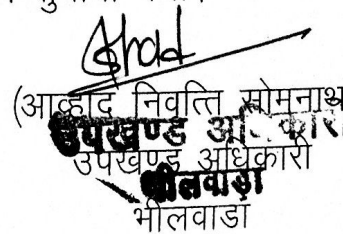 (आव्हाद निवृत्ति सोमनाथ
उपखण्ड अधिकारी
उपखण्ड अधिकारी
भीलवाड़ा
भीलवाडा